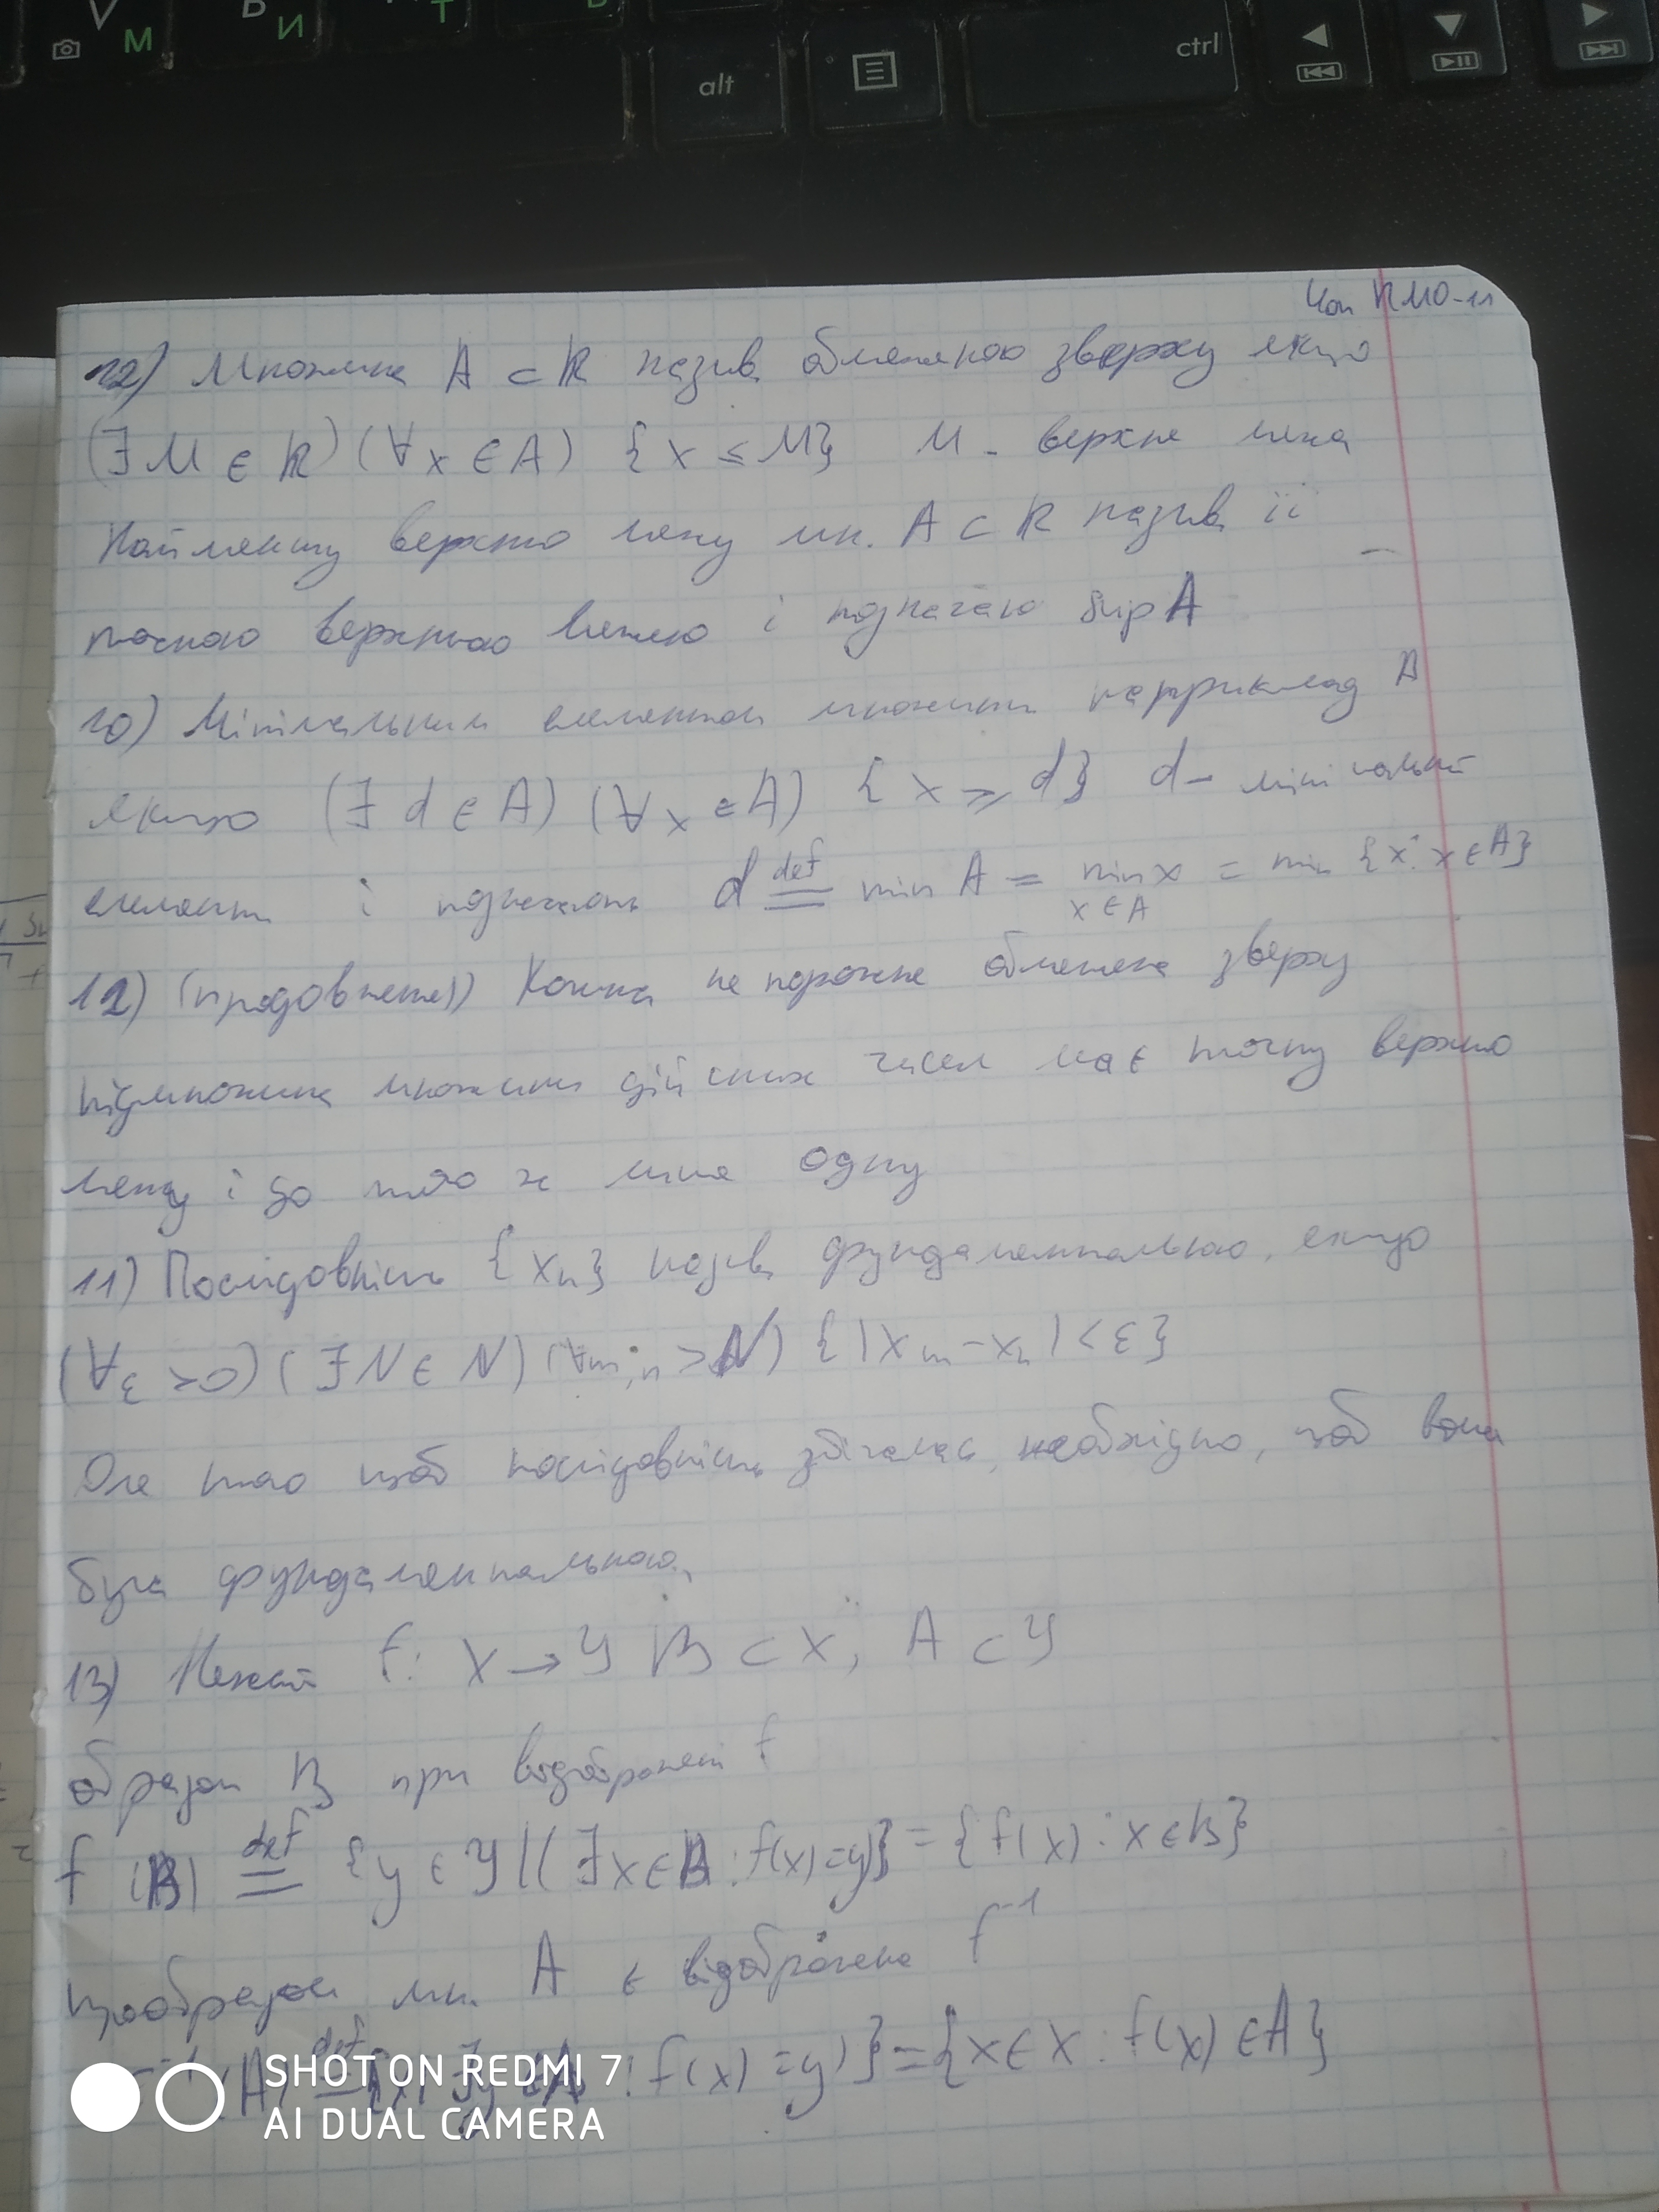 М
И
Т
alt
ctrl
КМО-11
12) Множина A ⊂ ℝ назив. обмеженою зверху якщо
(∃ M ∈ ℝ) (∀x ∈ A) {x ≤ M} M - верхня межа
Найменшу верхню межу мн. A ⊂ ℝ назив. її
точною верхньою межею і позначаю sup A
10) Мінімальним елементом множини наприклад A
якщо (∃ d ∈ A) (∀x ∈ A) {x ≥ d} d - мінімальний
елемент і позначають d def= min A = min x = min {x : x ∈ A}
x ∈ A
12) (продовження) Кожна не порожня обмежена зверху
підмножина множини дійсних чисел має точну верхню
межу і до того ж лише одну
11) Послідовність {xₙ} назив. фундаментальною, якщо
(∀ε > 0) (∃ N ∈ ℕ) (∀m; n > N) {|xₘ - xₙ| < ε}
Для того щоб послідовність збігалась, необхідно, щоб вона
була фундаментальною.
13) Нехай f: X → Y B ⊂ X; A ⊂ Y
образом B при відображені f
f(B) def= {y ∈ Y | (∃x ∈ B : f(x) = y)} = {f(x) : x ∈ B}
прообразом мн. A є відображення f⁻¹
(A) def= ∃y ∈ A : f(x) = y)} = {x ∈ X : f(x) ∈ A}
SHOT ON REDMI 7
AI DUAL CAMERA